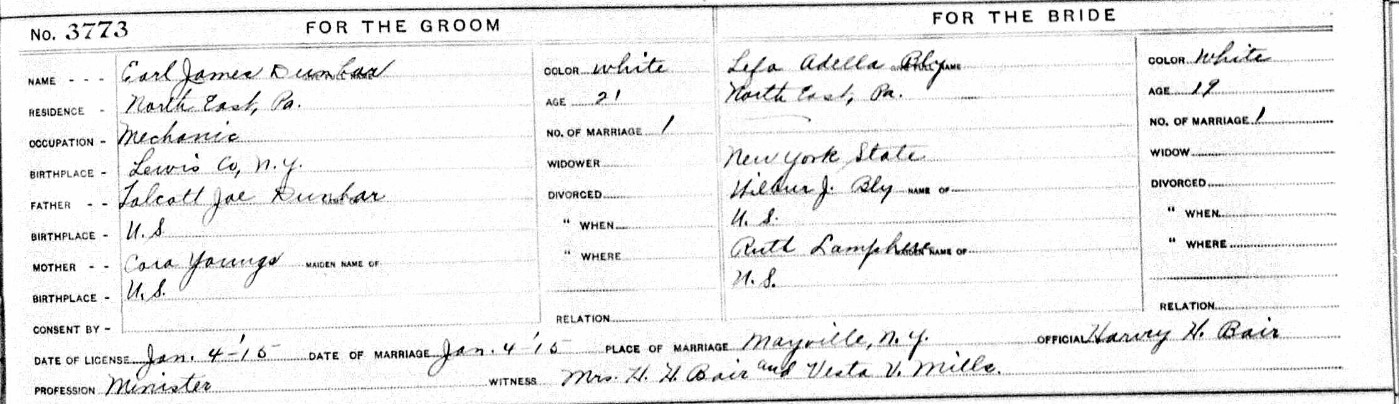 No. 3773 FOR THE GROOM FOR THE BRIDE
NAME - - - Earl James Dunbar COLOR White Lefa Adella Bly COLOR White
RESIDENCE - North East, Pa. AGE 21 North East, Pa. AGE 19
OCCUPATION - Mechanic NO. OF MARRIAGE 1 NO. OF MARRIAGE 1
BIRTHPLACE - Lewis Co, N.Y. WIDOWER New York State WIDOW
FATHER - - Talcott Joe Dunbar DIVORCED Wilbur J. Bly NAME OF DIVORCED
BIRTHPLACE - U.S " WHEN U.S. " WHEN
MOTHER - - Cora Youngs MAIDEN NAME OF " WHERE Ruth Lamphere MAIDEN NAME OF " WHERE
BIRTHPLACE - U.S. U.S.
CONSENT BY - RELATION RELATION
DATE OF LICENSE Jan. 4-'15 DATE OF MARRIAGE Jan. 4 '15 PLACE OF MARRIAGE Mayville, N.Y. OFFICIAL Harvey H. Bair
PROFESSION Minister WITNESS Mrs. H. H. Bair and Vesta V. Mills.